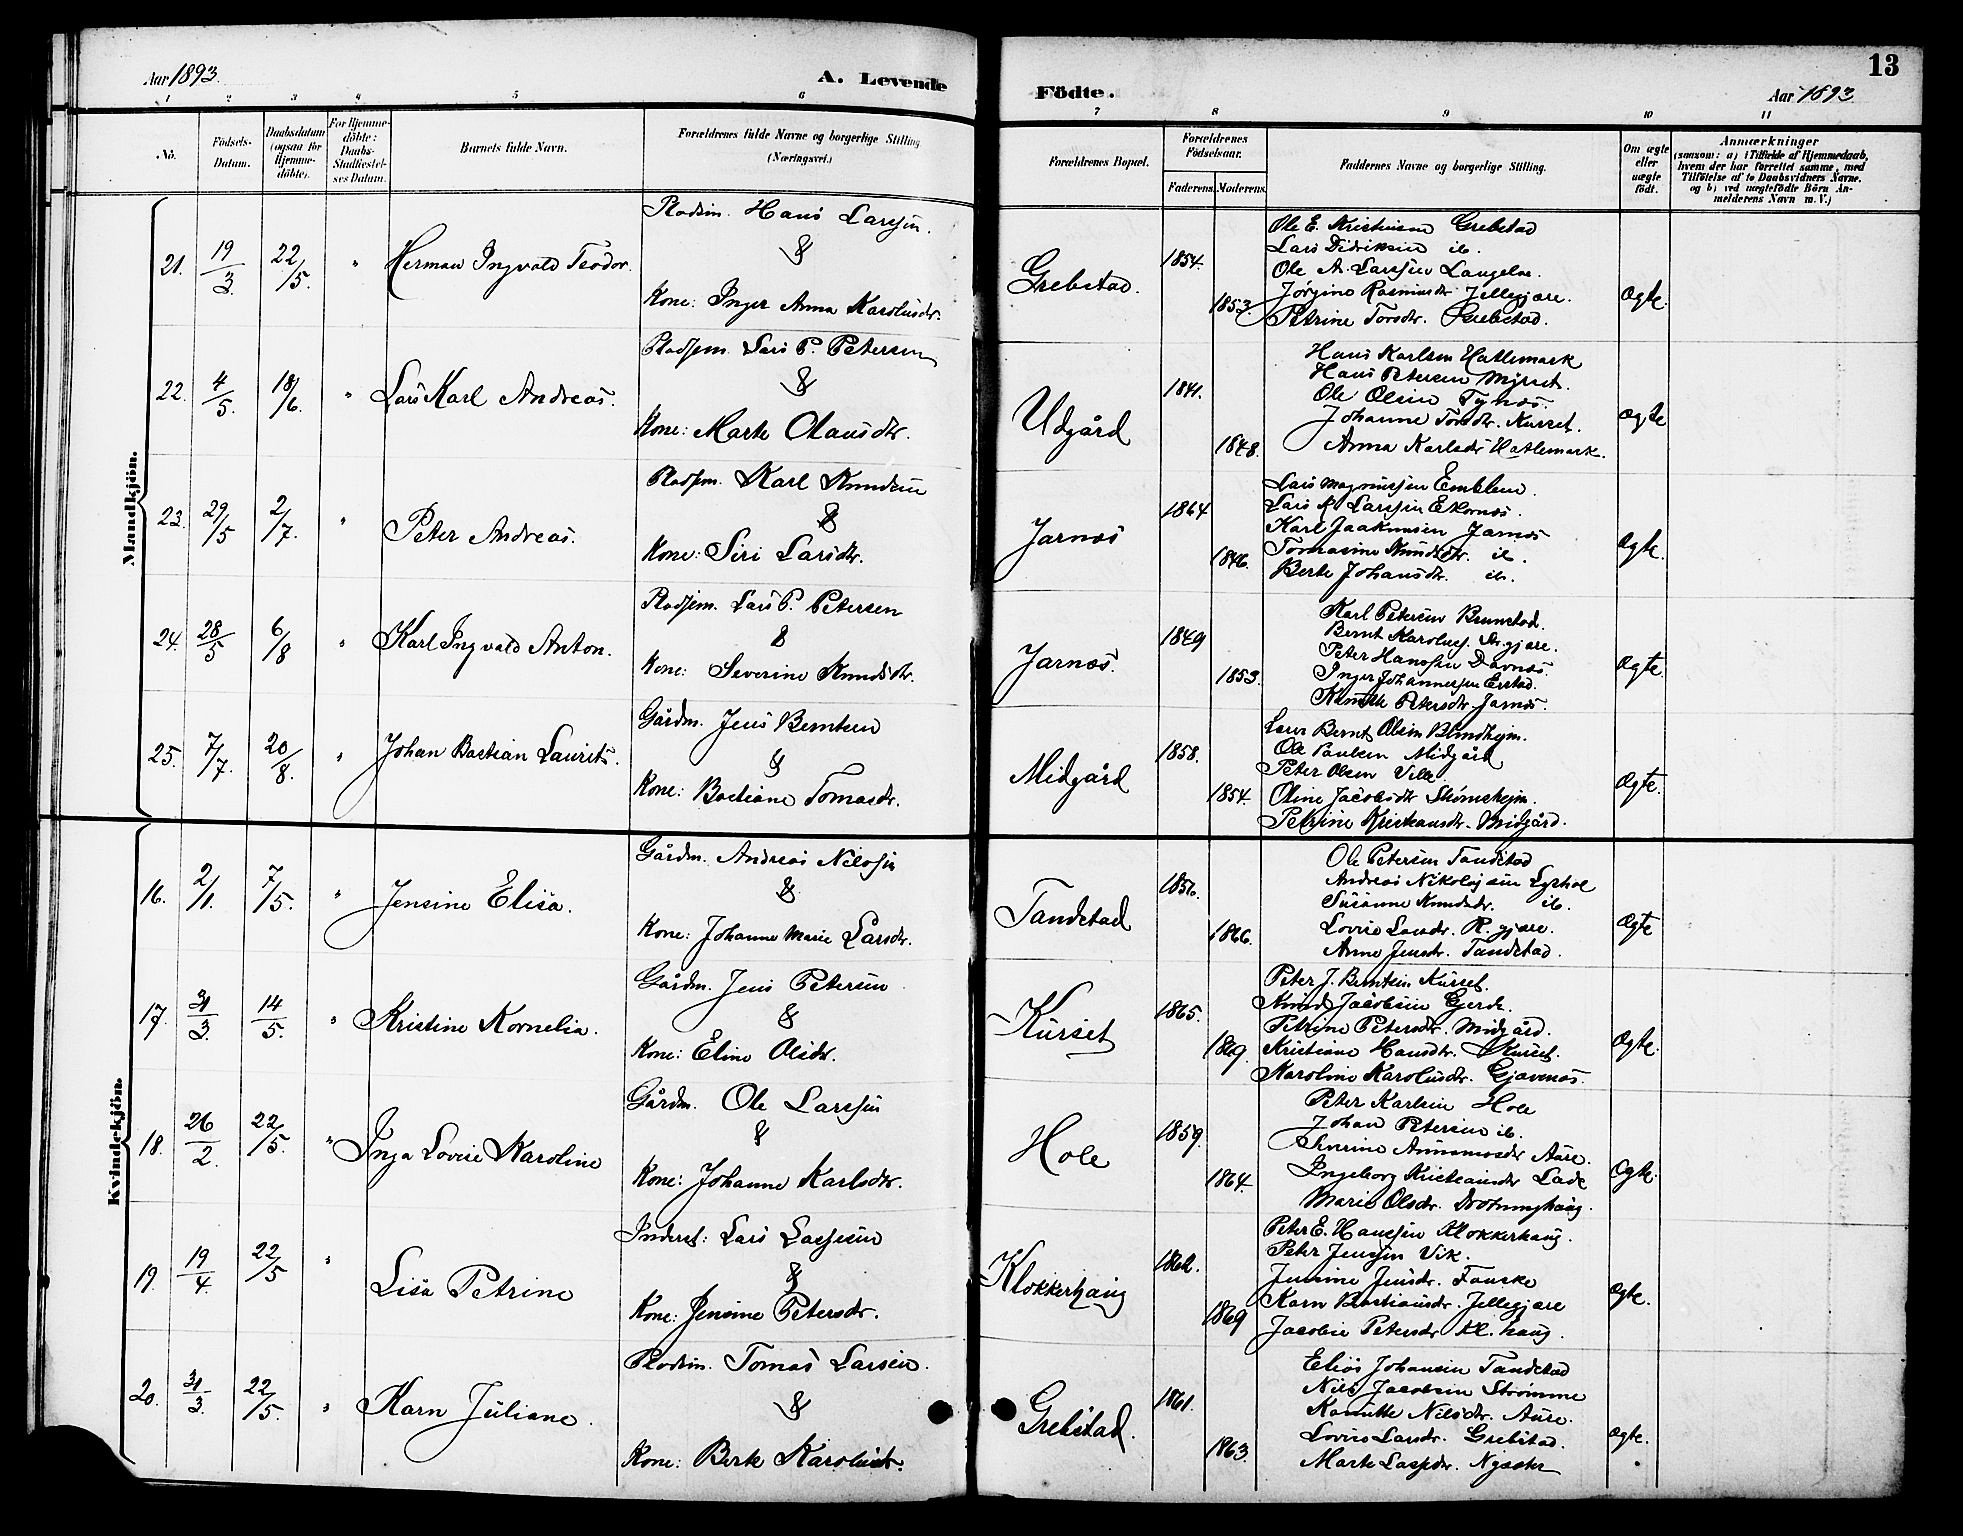 Aar 1893.
A. Levende
Födte.
13
Aar 1893.
1 2 3 4 5 6 7 8 9 10 11
No.
Födsels-
Datum.
Daabsdatum
(ogsaa for
Hjemme-
döbte).
For Hjemme-
döbte:
Daabs-
Stadfæstel-
ses Datum.
Barnets fulde Navn.
Forældrenes fulde Navne og borgerlige Stilling
(Næringsvei.)
Forældrenes Bopæl.
Forældrenes
Födselsaar.
Faderens. Moderens.
Faddernes Navne og borgerlige Stilling.
Om ægte
eller
uægte
født.
Anmærkninger
(saasom: a) i Tilfælde af Hjemmedaab,
hvem der har forrettet samme, med
Tilföielse af to Daabsvidners Navne.
og b) ved uægtefödte Börn An-
melderens Navn m. V.)
Mandkjön.
21. 19/3. 22/5. " Herman Ingvald Teodor.
Pladsm. Hans Larssen.
&
Kone: Inger Anna Karolusdr.
Grebstad. 1854. 1853.
Ole E. Kristiansen Grebstad
Lars Didriksen ib.
Ole A. Larssen Langeloe.
Jørgine Rasmusdr. Jellegjære.
Petrine Torsdr. Grebstad.
Ægte.
22. 4/5. 18/6. " Lars Karl Andreas.
Pladsm. Lars P. Petersen
&
Kone: Marte Olausdr.
Udgård 1841. 1848.
Hans Karlsen Hatlemark
Hans Petersen Myrset.
Ole Olsen Tynæs.
Johanne Torsdr. Kurset.
Anna Karlsdr Hatlemark.
Ægte
23. 29/5 2/7. " Peter Andreas.
Pladsm. Karl Knudsen
&
Kone: Siri Larsdr.
Jarnæs 1864 1846.
Lars Magnussen Emblem.
Lars K. Larssen Ekornæs.
Karl Jaakumsen Jarnæs
Tomasine Knudsdr. ib.
Berte Johansdr. ib.
Ægte.
24. 28/5 6/8 " Karl Ingvald Anton.
Pladsm. Lars P. Petersen
&
Kone: Severine Knudsdr.
Jarnæs. 1849 1853.
Karl Petersen Brunstad.
Bernt Karolus. gjære.
Peter Hanssen Davnæs.
Inger Johannessen Erstad.
Petersdr. Jarnæs.
Ægte.
25. 7/7. 20/8. " Johan Bastian Laurits.
Gårdm. Jens Berntsen
&
Kone: Bastiane Tomasdr.
Midgård 1858. 1854.
Bernt Olsen Blindhejm.
Ole Paulsen Midgård
Peter Olsen Velle.
Oline Jacobsdr Strømshejm.
Petrine Kristiansdr. Midgård.
Ægte.
Kvindekjön.
16. 2/1. 7/5. " Jensine Elisa.
Gårdm. Andreas Nilssen
&
Kone: Johanne Marie Larsdr.
Tandstad 1856. 1866.
Ole Petersen Tandstad
Andreas Nikolajsen Lyshol
Susanne Knudsdr. ib.
Lovise Larsdr. R. gjære.
Anne Jensdr. Tandstad.
Ægte
17. 31/3. 14/5. " Kristine Kornelia.
Gårdm. Jens Petersen
&
Kone: Eline Olsdr.
Kurset 1865. 1869.
Peter J. Berntsen Kurset.
Knud Jacobsen Gjerde.
Petrine Petersdr. Midgård.
Kristiane Hansdr. Kurset.
Karoline Karolusdr. Gjævenæs.
Ægte.
18. 26/2. 22/5. " Inga Lovise Karoline
Gårdm. Ole Larssen
&
Kone: Johanne Karlsdr.
Hole 1859. 1864.
Peter Karlsen Hole
Johan Petersen ib.
Severine Aure.
Ingeborg Kristiansdr Lade
Marie Olsdr. Dronninghaug.
Ægte.
19. 19/4. 22/5 " Lisa Petrine
Inderst: Lars Lassesen
&
Kone: Jensine Petersdr.
Klokkerhaug 1862. 1869
Peter E. Hanssen Klokkerhaug.
Peter Jenssen Vik.
Jensine Jensdr. Fauske
Karn Bastiansdr. Jellegjære
Jacobie Petersdr Kl. haug.
Ægte.
20. 31/3. 22/5. " Karn Juliane.
Pladsm. Tomas Larsen.
&
Kone: Berte Karolusdr.
Grebstad. 1861. 1863.
Elias Johansen Tandstad
Nils Jacobsen Strømme
Kanutte Nilsdr. Aure.
Lovise Larsdr. Grebstad.
Marte Lassedr. Nysæter
Ægte.